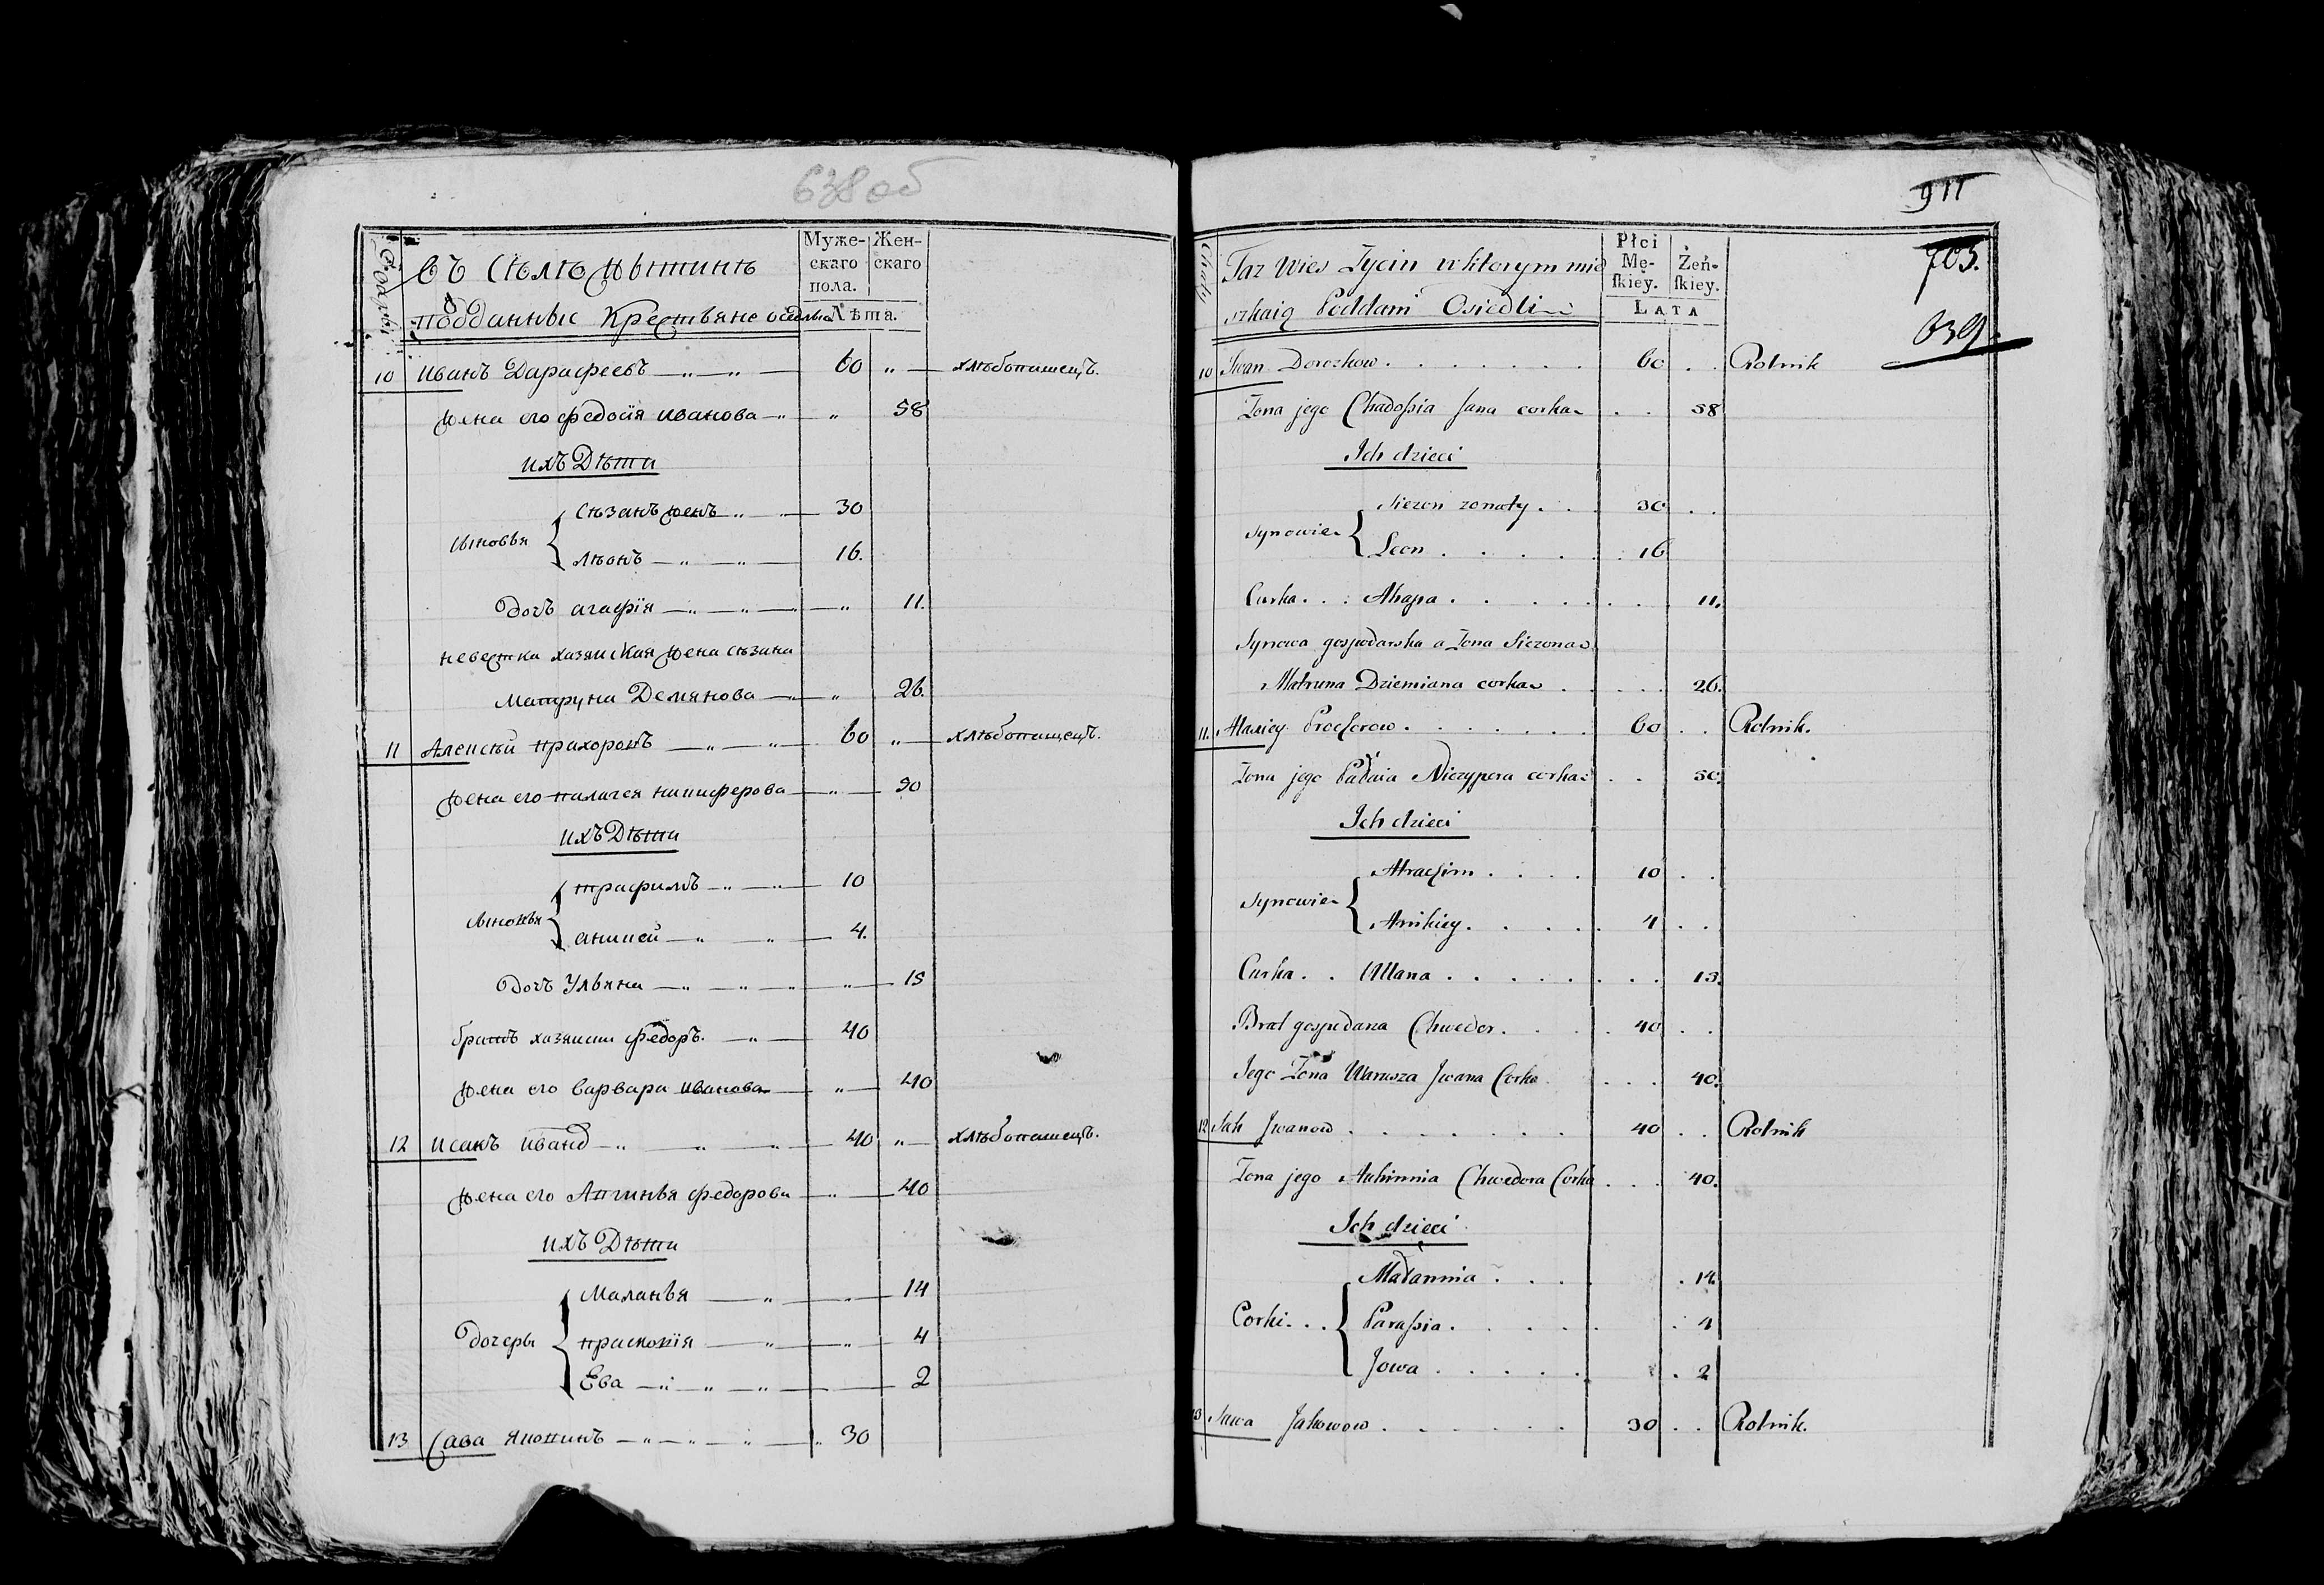 638 об
Муже-
скаго
пола.
Жен-
скаго
Лѣта.
въ Селѣ Жытинѣ
подданные Крестьяне оседлые
10 Иванъ Дарафеевъ 60 „ хлѣбопашецъ.
жена его федосїя иванова „ 58
ихъ Дѣти
сыновья
Сѣзанъ жен. 30
лѣонъ 16.
Дочъ агафїя „ 11.
невестка хазяиская жена сѣзана
Матруна Демянова „ 26.
11 Алексѣй прахоровъ 60 „ хлѣбопашецъ.
жена его палагея никиферова „ 50
ихъ Дѣти
сыновья
трафимъ 10
аникей 4.
Дочъ Ульяна „ 15
братъ хазяина федоръ. 40
жена его варвара иванова „ 40
12 Исакъ иванов 40 „ хлѣбопашецъ.
жена его Апгинья федорова „ 40
ихъ Дѣти
Дочеры
Маланья „ 14
прасковїя „ 4
Ева 2
13 Сава Якопинъ 30
911
703.
639.
Chaty
Płci
Mę-
skiey.
Żeń-
skiey.
Lata
Taz Wies Zycin w ktorym mie
szkaią Poddani Osiedli
10 Iwan Dorozkow 60 Rolnik
Zona jego Chadossia Jana corka 58
Ich dzieci
Synowie
Siezon zonaty 30
Leon 16
Curka Ahapa 11.
Synowa gospodarska a Zona Siezona
Matruna Dziemiana corka 26.
11. Alaxiey Prochorow 60 Rolnik.
Zona jego Pałaia Niczypora corka 50.
Ich dzieci
Synowie
Atrachim 10
Anikiey 4
Curka Ullana 13.
Brat gospodarza Chwedor 40
Jego Zona Warusza Jwana Corka 40.
12 Sak Jwanow 40 Rolnik
Zona jego Auhinnia Chwedora Corka 40.
Ich dzieci
Corki
Małannia 14.
Parassia 4
Jowa 2
13 Sawa Jakowow 30 Rolnik.